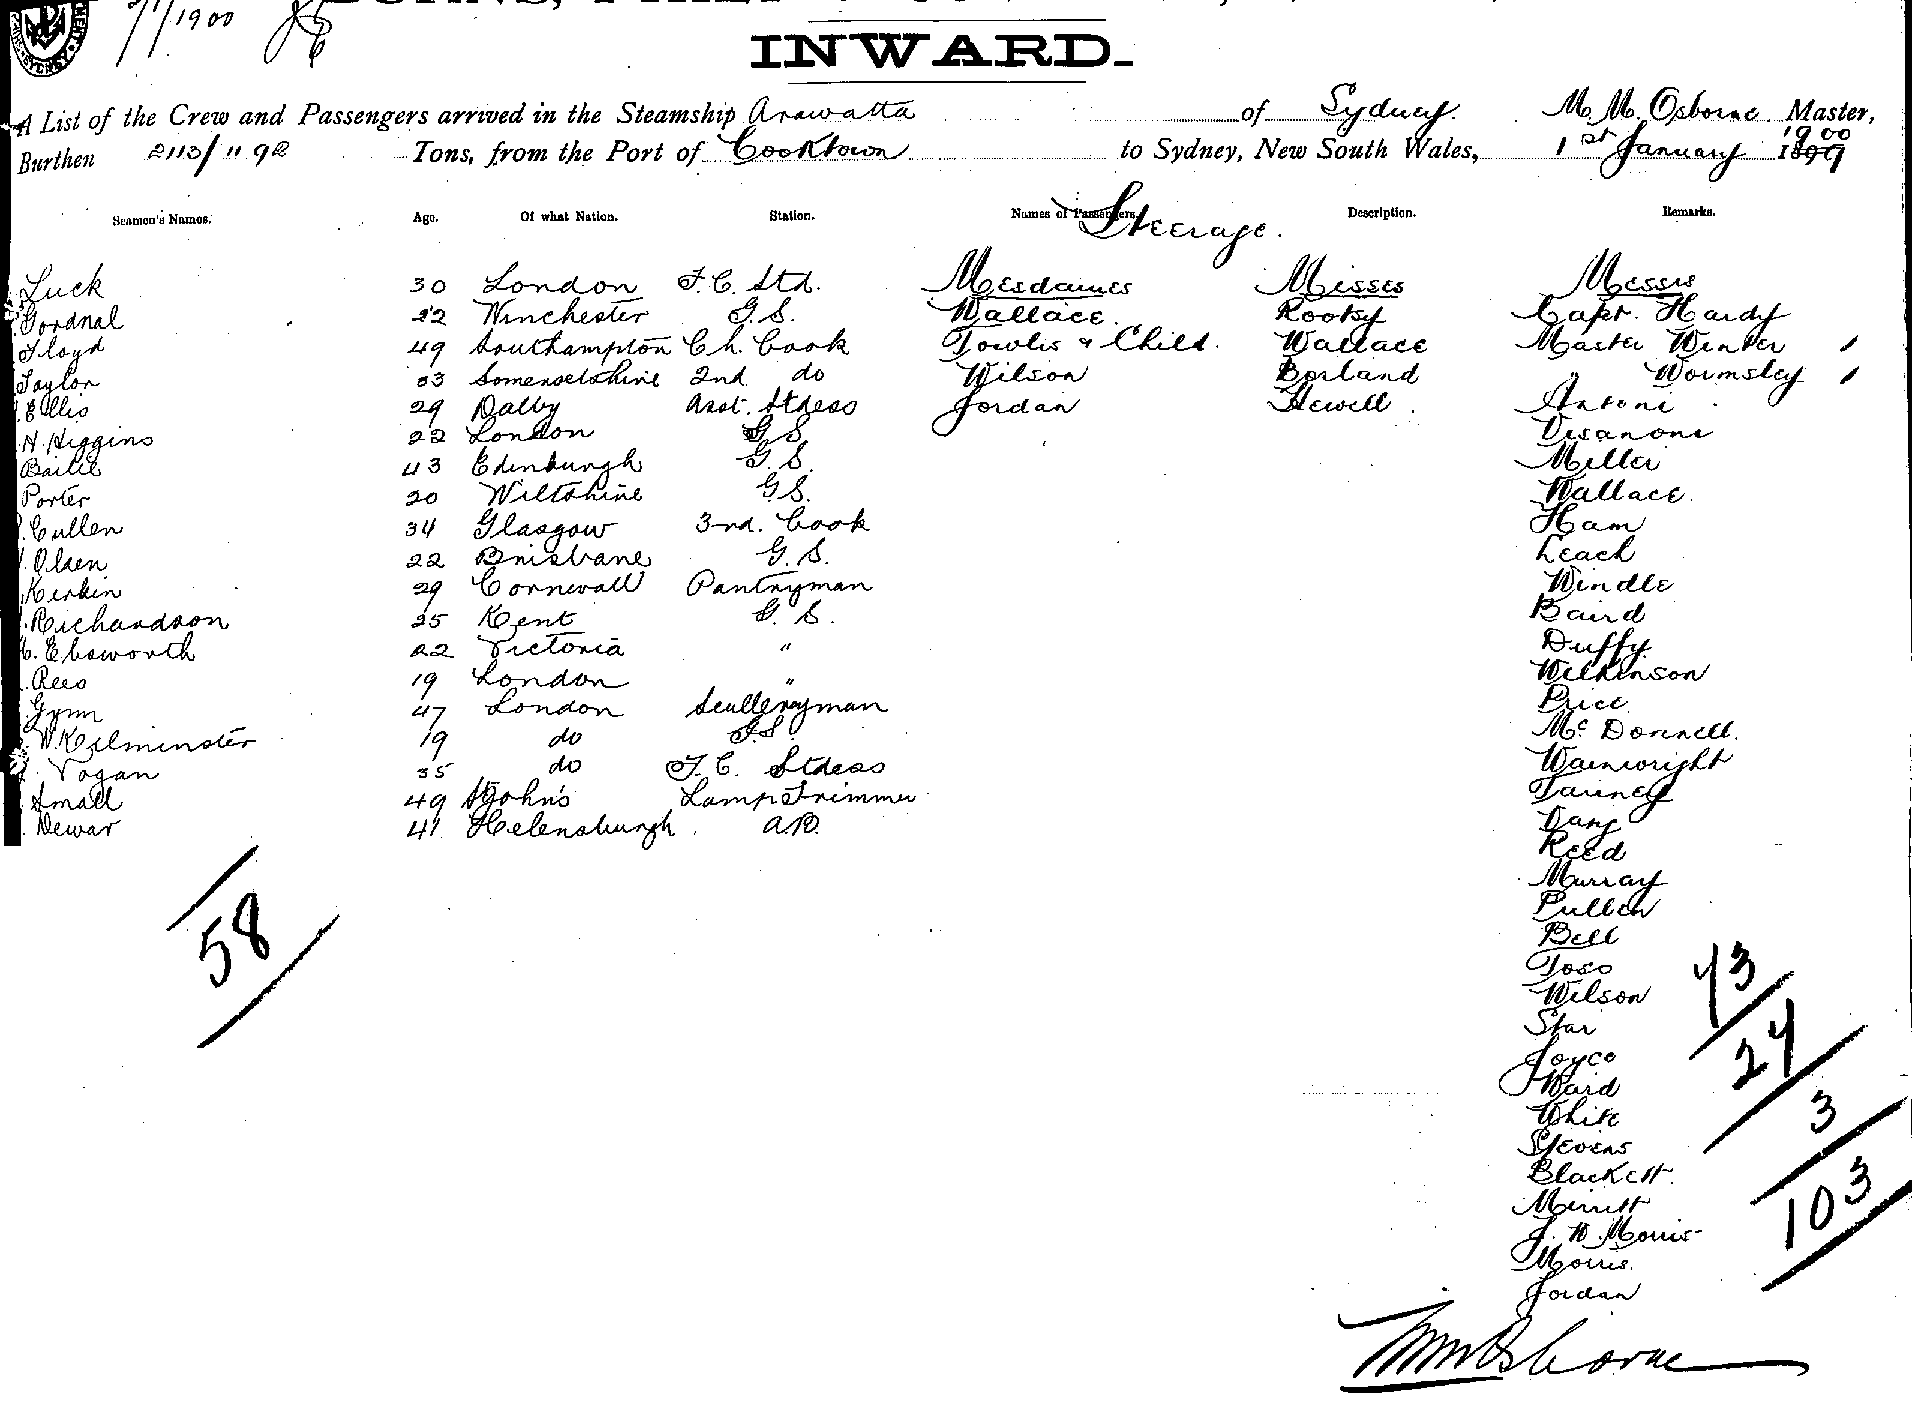 1/1900
INWARD.
A List of the Crew and Passengers arrived in the Steamship Arawatta of Sydney. M. M. Osborne Master,
Burthen 2113/1192 Tons, from the Port of Cooktown to Sydney, New South Wales, 1st January 1900 1899
Seamen's Names. Age. Of what Nation. Station. Names of Passengers. Description. Remarks.
Steerage.
Luck 30 London F.C. Std. Mesdames Misses Messrs
Gordnal 22 Winchester G.S. Wallace Rooky Capt. Hardy
Floyd 49 Southampton Ch. Cook Towlis & Child. Wallace Master Winter
Taylor 33 Somersetshire 2nd do Wilson Borland Wormsley
Ellis 29 Dalby Asst. Stdess Jordan Hewell Antoni
H. Higgins 22 London G.S. Visanoni
Bailie 43 Edinburgh G.S. Miller
Porter 20 Wiltshire G.S. Wallace
Cullen 34 Glasgow 3rd. Cook Ham
Olsen 22 Brisbane G.S. Leach
Kerkin 29 Cornwall Pantryman Windle
Richardson 25 Kent G.S. Baird
Ebsworth 22 Victoria " Duffy
Rees 19 London " Wilkinson
Gynn 47 London Sculleryman Price
W. Kilminster 19 do G.S. McDonnell.
Vogan 35 do F.C. Stdess Wainwright
Small 49 St John's Lamp Trimmer
Dewar 41 Helensburgh A.B.
Reed
Murray
Pullen
58
Bell
Toso
Wilson
73
Star
Joyce
24
Ward
White
3
Stevens
Blackett.
103
Merritt
J. W. Morris
Morris.
Jordan
M M Osborne